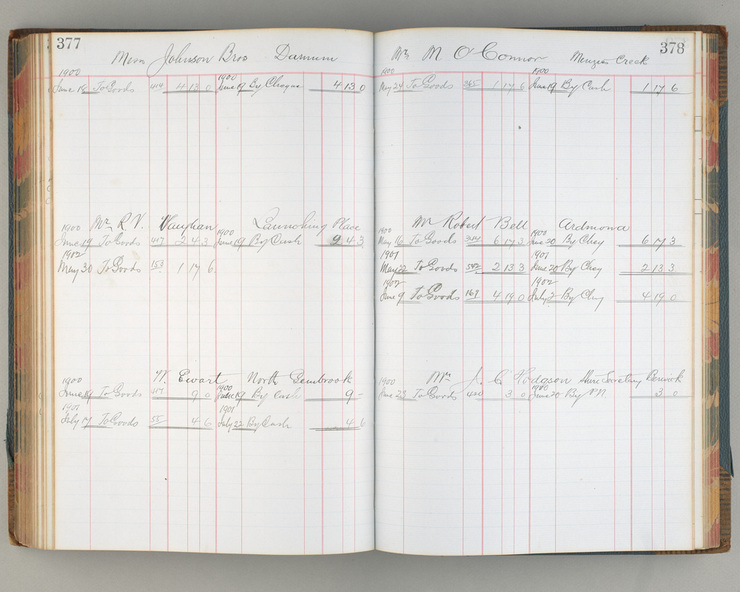 377
Messrs Johnson Bros Darnum
1900 1900
June 16 To Goods 419 4 13 0 June 19 By Cheque 4 13 0
Mr R. V. Vaughan Launching Place
1900 1900
June 19 To Goods 417 2 4 3 June 19 By Cash 2 4 3
1902
May 30 To Goods 153 1 17 6
W. Ewart North Gembrook
1900 1900
June 19 To Goods 417 9 0 June 19 By Cash 9 -
1901 1901
July 17 To Goods 55 4 6 July 22 By Cash 4 6
378
Mr M O'Connor Menzies Creek
1900 1900
May 24 To Goods 365 1 17 6 June 19 By Cash 1 17 6
Mr Robert Bell Ardmona
1900 1900
May 16 To Goods 6 17 3 June 20 By Chq 6 17 3
1901 1901
May 22 To Goods 502 2 13 3 June 20 By Chq 2 13 3
1902 1902
June 9 To Goods 169 4 19 0 July 2 By Chq 4 19 0
Mr J. C. Hodgson Shire Secretary Berwick
1900 1900
June 23 To Goods 420 3 0 June 20 By PN 3 0